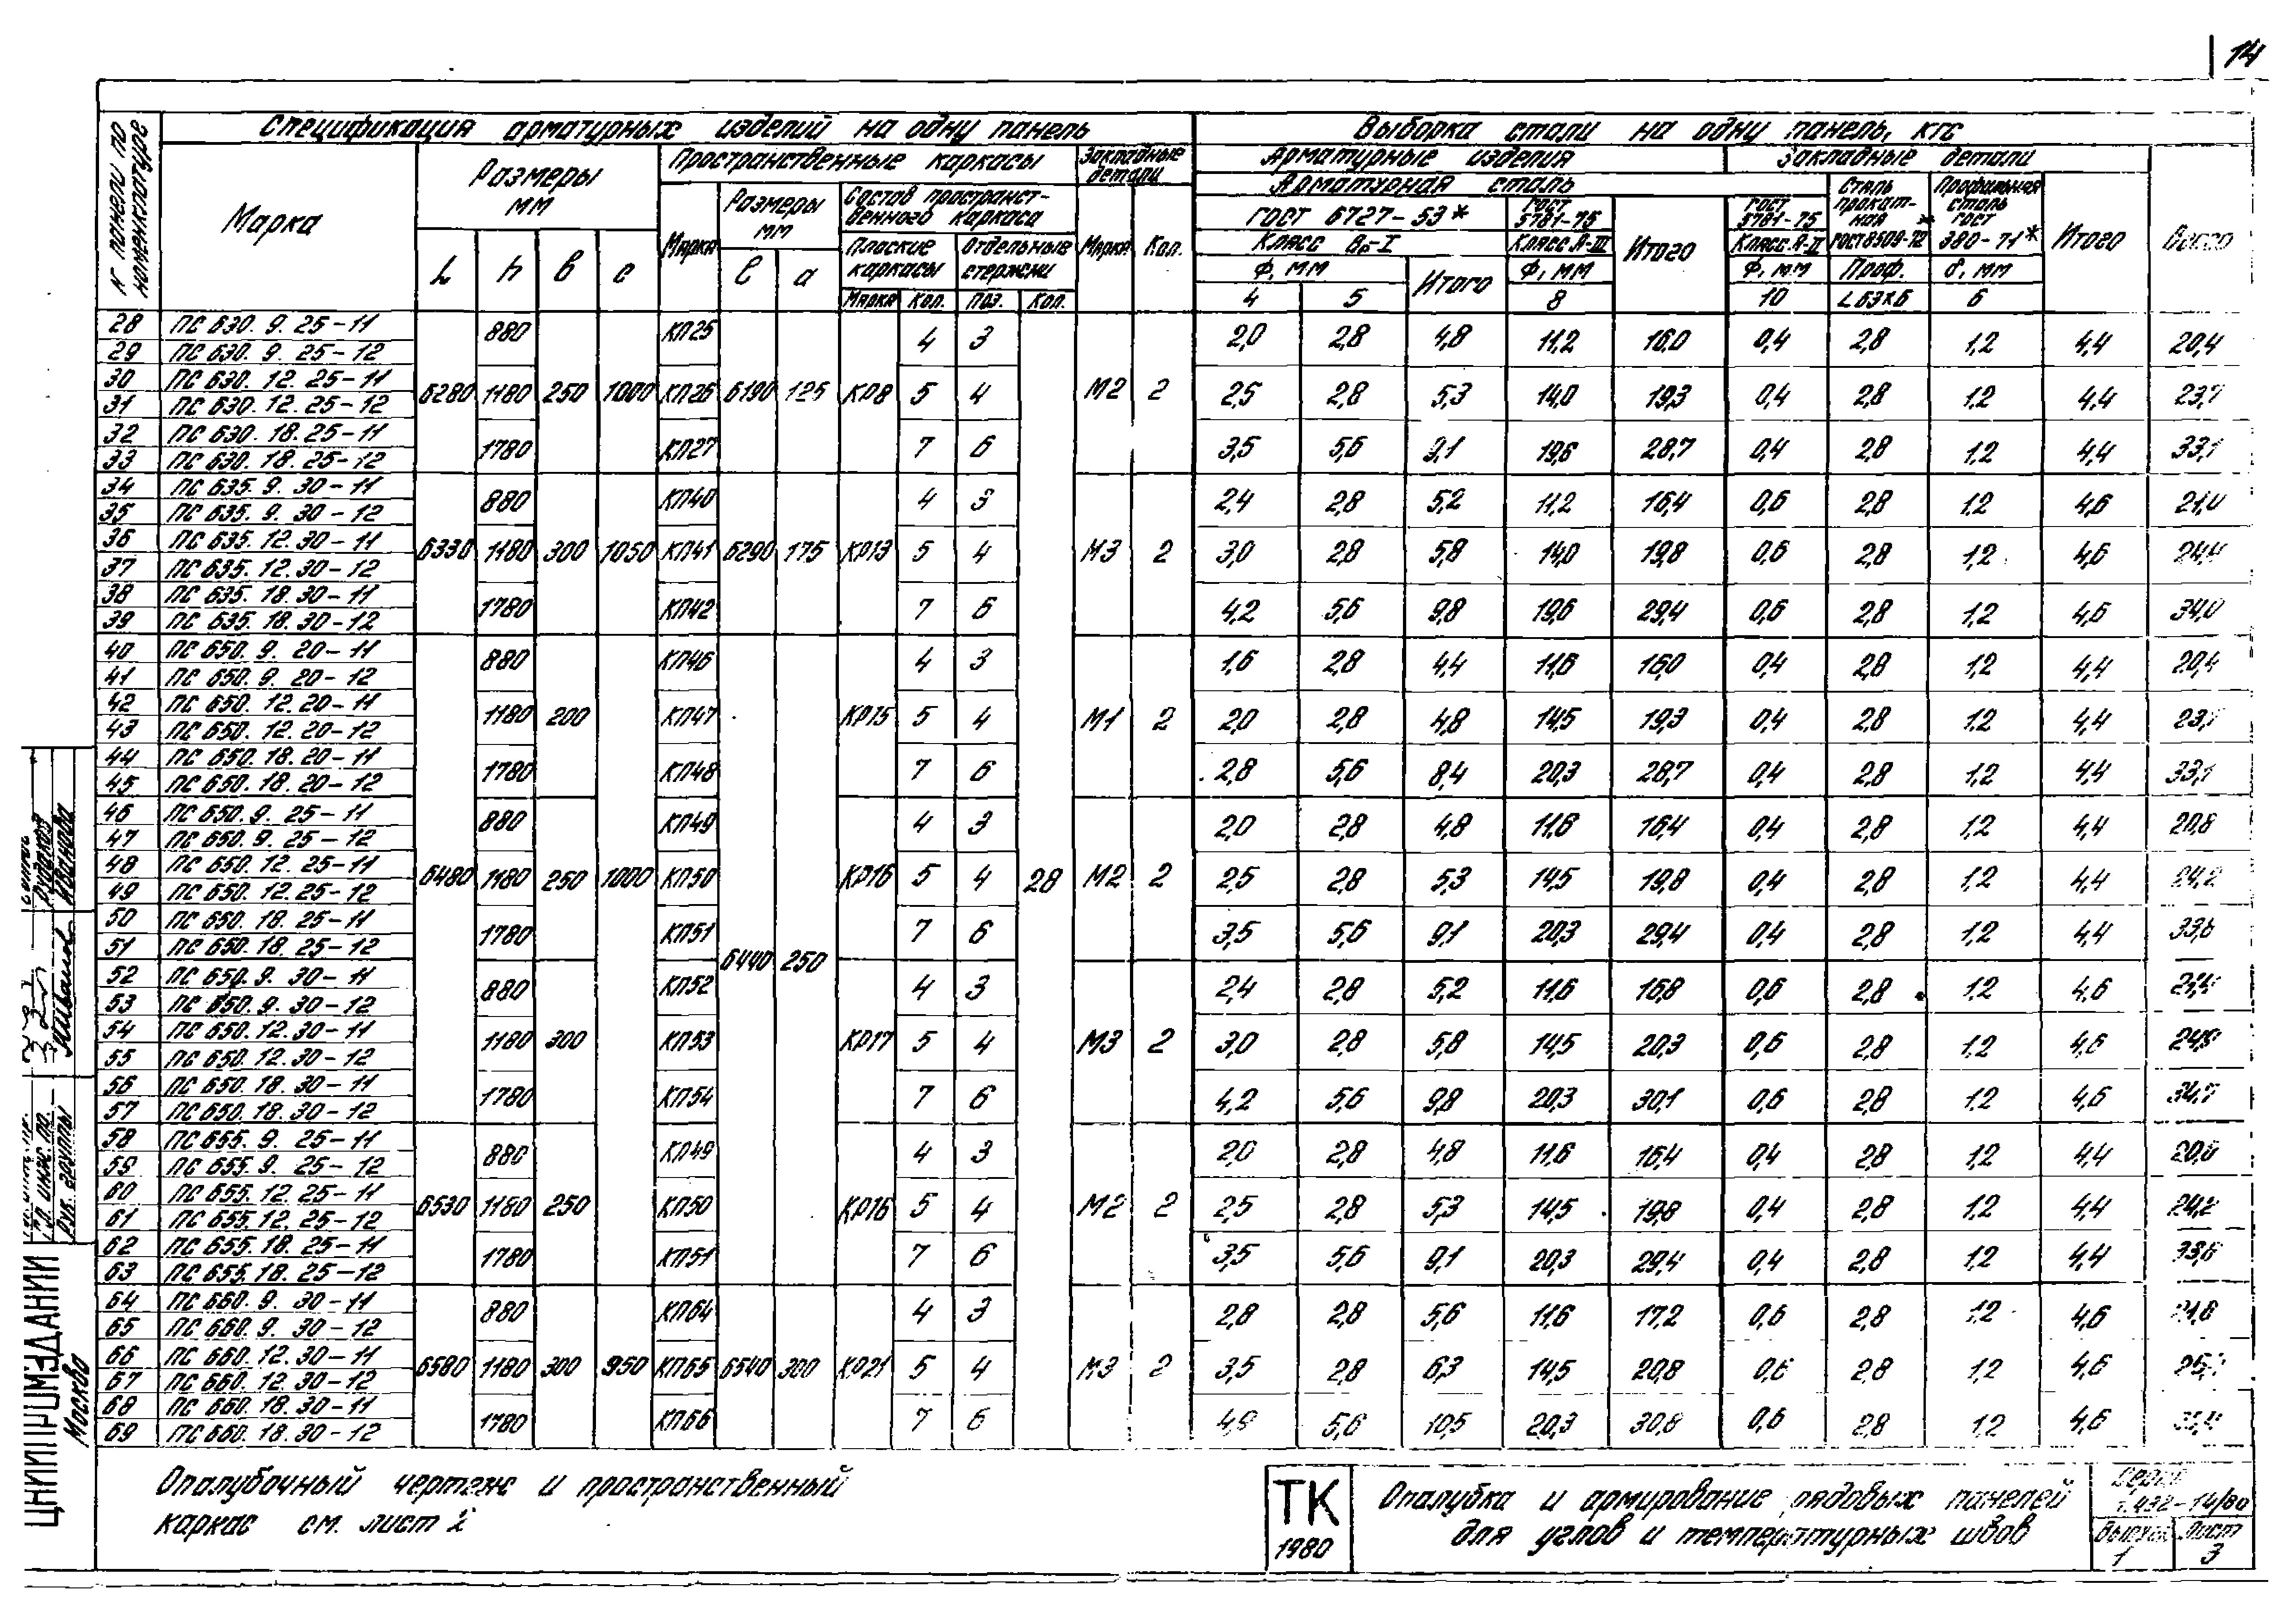 14
Спецификация арматурных изделий на одну панель
Выборка стали на одну панель, кгс
N панели по номенклатуре
Марка
Размеры мм
L h в с
Пространственные каркасы
Марка
Размеры мм
ℓ а
Состав пространственного каркаса
Плоские каркасы
Отдельные стержни
Марка Кол. Поз. Кол.
Закладные детали
Марка Кол.
Арматурные изделия
Закладные детали
Арматурная сталь
ГОСТ 6727-53* ГОСТ 5781-75 Итого ГОСТ 5781-75 Сталь прокатная ГОСТ 8509-72* Профильная сталь ГОСТ 380-71* Итого Всего
Класс Вр-I Класс А-III Класс А-II
Ф, мм Итого Ф, мм Ф, мм Проф. δ, мм
4 5 8 10 L63х6 6
28 ПС 630. 9. 25-11 880 КП25 4 3 2,0 2,8 4,8 11,2 16,0 0,4 2,8 1,2 4,4 20,4
29 ПС 630. 9. 25-12
30 ПС 630. 12. 25-11 6280 1180 250 1000 КП26 6190 125 КР8 5 4 М2 2 2,5 2,8 5,3 14,0 19,3 0,4 2,8 1,2 4,4 23,7
31 ПС 630. 12. 25-12
32 ПС 630. 18. 25-11 1780 КП27 7 6 3,5 5,6 9,1 19,6 28,7 0,4 2,8 1,2 4,4 33,1
33 ПС 630. 18. 25-12
34 ПС 635. 9. 30-11 880 КП40 4 3 2,4 2,8 5,2 11,2 16,4 0,6 2,8 1,2 4,6 21,0
35 ПС 635. 9. 30-12
36 ПС 635. 12. 30-11 6330 1180 300 1050 КП41 6290 175 КР13 5 4 М3 2 3,0 2,8 5,8 14,0 19,8 0,6 2,8 1,2 4,6 24,4
37 ПС 635. 12. 30-12
38 ПС 635. 18. 30-11 1780 КП42 7 6 4,2 5,6 9,8 19,6 29,4 0,6 2,8 1,2 4,6 34,0
39 ПС 635. 18. 30-12
40 ПС 650. 9. 20-11 880 КП46 4 3 1,6 2,8 4,4 11,6 16,0 0,4 2,8 1,2 4,4 20,4
41 ПС 650. 9. 20-12
42 ПС 650. 12. 20-11 1180 200 КП47 КР15 5 4 М1 2 2,0 2,8 4,8 14,5 19,3 0,4 2,8 1,2 4,4 23,7
43 ПС 650. 12. 20-12
44 ПС 650. 18. 20-11 1780 КП48 7 6 2,8 5,6 8,4 20,3 28,7 0,4 2,8 1,2 4,4 33,1
45 ПС 650. 18. 20-12
46 ПС 650. 9. 25-11 880 КП49 4 3 2,0 2,8 4,8 11,6 16,4 0,4 2,8 1,2 4,4 20,8
47 ПС 650. 9. 25-12
48 ПС 650. 12. 25-11 6480 1180 250 1000 КП50 КР16 5 4 28 М2 2 2,5 2,8 5,3 14,5 19,8 0,4 2,8 1,2 4,4 24,2
49 ПС 650. 12. 25-12
50 ПС 650. 18. 25-11 1780 КП51 7 6 3,5 5,6 9,1 20,3 29,4 0,4 2,8 1,2 4,4 33,8
51 ПС 650. 18. 25-12
6440 250
52 ПС 650. 9. 30-11 880 КП52 4 3 2,4 2,8 5,2 11,6 16,8 0,6 2,8 1,2 4,6 21,4
53 ПС 650. 9. 30-12
54 ПС 650. 12. 30-11 1180 300 КП53 КР17 5 4 М3 2 3,0 2,8 5,8 14,5 20,3 0,6 2,8 1,2 4,6 24,9
55 ПС 650. 12. 30-12
56 ПС 650. 18. 30-11 1780 КП54 7 6 4,2 5,6 9,8 20,3 30,1 0,6 2,8 1,2 4,6 34,7
57 ПС 650. 18. 30-12
58 ПС 655. 9. 25-11 880 КП49 4 3 2,0 2,8 4,8 11,6 16,4 0,4 2,8 1,2 4,4 20,8
59 ПС 655. 9. 25-12
60 ПС 655. 12. 25-11 6530 1180 250 КП50 КР16 5 4 М2 2 2,5 2,8 5,3 14,5 19,8 0,4 2,8 1,2 4,4 24,2
61 ПС 655. 12. 25-12
62 ПС 655. 18. 25-11 1780 КП51 7 6 3,5 5,6 9,1 20,3 29,4 0,4 2,8 1,2 4,4 33,8
63 ПС 655. 18. 25-12
64 ПС 660. 9. 30-11 880 КП64 4 3 2,8 2,8 5,6 11,6 17,2 0,6 2,8 1,2 4,6 21,8
65 ПС 660. 9. 30-12
66 ПС 660. 12. 30-11 6580 1180 300 950 КП65 6540 300 КР21 5 4 М3 2 3,5 2,8 6,3 14,5 20,8 0,6 2,8 1,2 4,6
67 ПС 660. 12. 30-12
68 ПС 660. 18. 30-11 1780 КП66 7 6 4,9 5,6 10,5 20,3 30,8 0,6 2,8 1,2 4,6 35,4
69 ПС 660. 18. 30-12
Опалубочный чертеж и пространственный
каркас см. лист 2
ТК
1980
Опалубка и армирование рядовых панелей
для углов и температурных швов
Серия
1.432-14/80
Выпуск Лист
1 3
Гл. инж. пр.
Рук. группы
Рудаков
Иванова
ЦНИИПРОМЗДАНИЙ
Москва